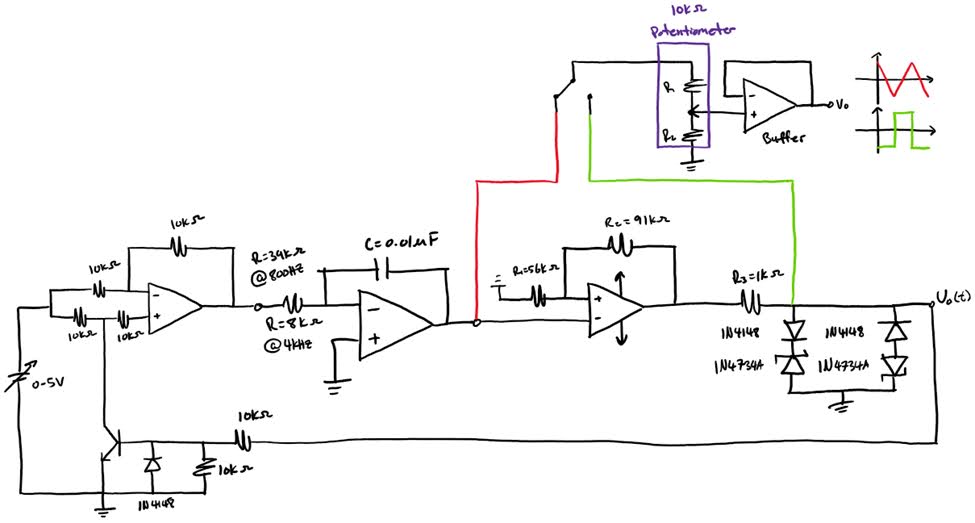 10kΩ
Potentiometer
R₁
R₂
-
+
Vo
Buffer
10kΩ
10kΩ
-
+
10kΩ
10kΩ
R=39kΩ
@800Hz
R=8kΩ
@4kHz
C=0.01µF
-
+
R₂=91kΩ
R₁=56kΩ
+
-
R₃=1kΩ
Vo(t)
1N4148
1N4734A
1N4148
1N4734A
0-5V
10kΩ
10kΩ
1N4148